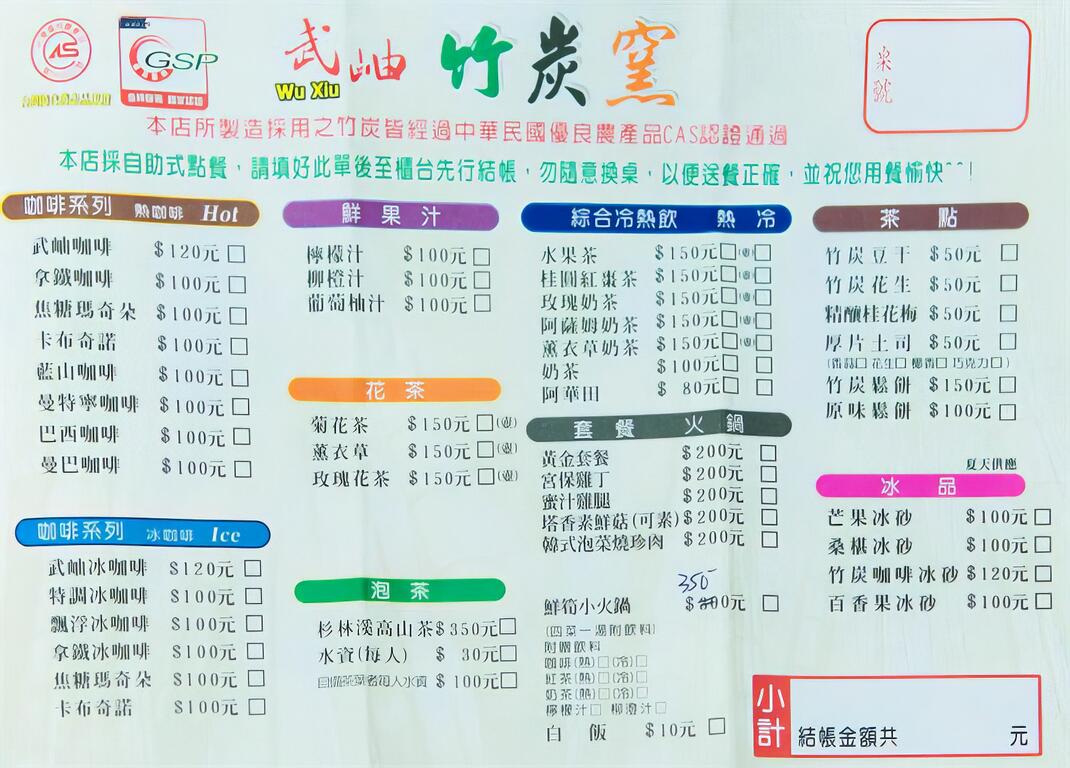 GSP
武岫竹炭窯
Wu Xiu
桌號
本店所製造採用之竹炭皆經過中華民國優良農產品CAS認證通過
本店採自助式點餐，請填好此單後至櫃台先行結帳，勿隨意換桌，以便送餐正確，並祝您用餐愉快^^!
咖啡系列 熱咖啡 Hot
武岫咖啡 $120元□
拿鐵咖啡 $100元□
焦糖瑪奇朵 $100元□
卡布奇諾 $100元□
藍山咖啡 $100元□
曼特寧咖啡 $100元□
巴西咖啡 $100元□
曼巴咖啡 $100元□
咖啡系列 冰咖啡 Ice
武岫冰咖啡 $120元□
特調冰咖啡 $100元□
飄浮冰咖啡 $100元□
拿鐵冰咖啡 $100元□
焦糖瑪奇朵 $100元□
卡布奇諾 $100元□
鮮果汁
檸檬汁 $100元□
柳橙汁 $100元□
葡萄柚汁 $100元□
花茶
菊花茶 $150元□(壺)
薰衣草 $150元□(壺)
玫瑰花茶 $150元□(壺)
泡茶
杉林溪高山茶$350元□
水資(每人) $ 30元□
自備茶葉者每人水資 $100元□
綜合冷熱飲 熱 冷
水果茶 $150元□(壺)□
桂圓紅棗茶 $150元□(壺)□
玫瑰奶茶 $150元□(壺)□
阿薩姆奶茶 $150元□(壺)□
薰衣草奶茶 $150元□(壺)□
奶茶 $100元□ □
阿華田 $ 80元□ □
套餐 火鍋
黃金套餐 $200元□
宮保雞丁 $200元□
蜜汁雞腿 $200元□
塔香素鮮菇(可素)$200元□
韓式泡菜燒珍肉 $200元□
350
鮮筍小火鍋 $300元□
(四菜一湯附飲料)
附贈飲料
咖啡(熱)□(冷)□
紅茶(熱)□(冷)□
奶茶(熱)□(冷)□
檸檬汁□ 柳澄汁□
白飯 $10元□
茶點
竹炭豆干 $50元□
竹炭花生 $50元□
精釀桂花梅 $50元□
厚片土司 $50元□
(香蒜□ 花生□ 椰香□ 巧克力□)
竹炭鬆餅 $150元□
原味鬆餅 $100元□
夏天供應
冰品
芒果冰砂 $100元□
桑椹冰砂 $100元□
竹炭咖啡冰砂 $120元□
百香果冰砂 $100元□
小計
結帳金額共 元